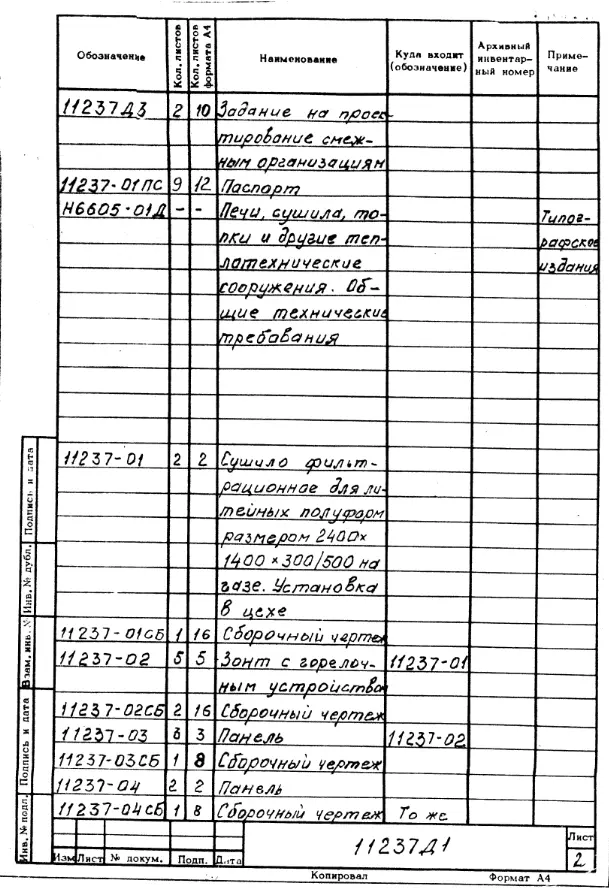 Обозначение Кол. листов Кол. листов формата А4 Наименование Куда входит (обозначение) Архивный инвентарный номер Примечание
11237Д3 2 10 Задание на проек-
тирование смеж-
ным организациям
11237-01ПС 9 12 Паспорт
Н6605-01Д - - Печи, сушила, то- Типог-
пки и другие теп- рафское
лотехнические издания
сооружения. Об-
щие технические
требования
11237-01 2 2 Сушило фильт-
рационное для ли-
тейных полуформ
размером 2400×
1400×300/500 на
газе. Установка
в цехе
11237-01СБ 1 16 Сборочный чертеж
11237-02 5 5 Зонт с горелоч- 11237-01
ным устройством
11237-02СБ 2 16 Сборочный чертеж
11237-03 3 3 Панель 11237-02
11237-03СБ 1 8 Сборочный чертеж
11237-04 2 2 Панель
11237-04СБ 1 8 Сборочный чертеж То же
Инв.№ подл. Подпись и дата Взам. инв. № Инв.№ дубл. Подпись и дата
11237Д1
Лист
2
Изм Лист № докум. Подп. Дата
Копировал Формат А4